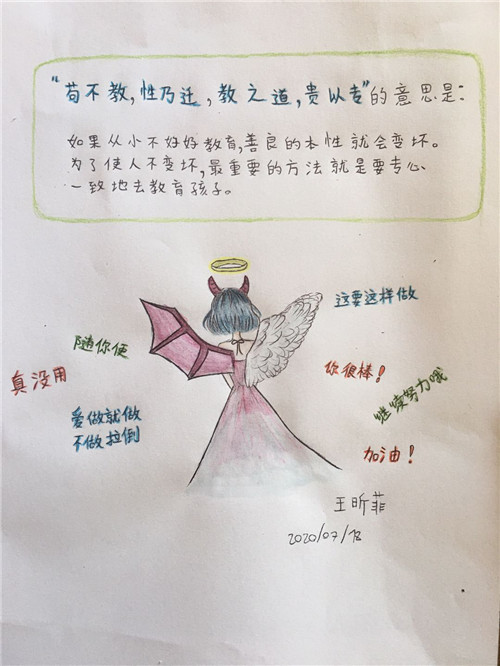 “苟不教，性乃迁，教之道，贵以专”的意思是：
如果从小不好好教育，善良的本性就会变坏。
为了使人不变坏，最重要的方法就是要专心
一致地去教育孩子。
这要这样做
随你便
真没用
你很棒！
继续努力哦
爱做就做
不做拉倒
加油！
王昕菲
2020/07/18